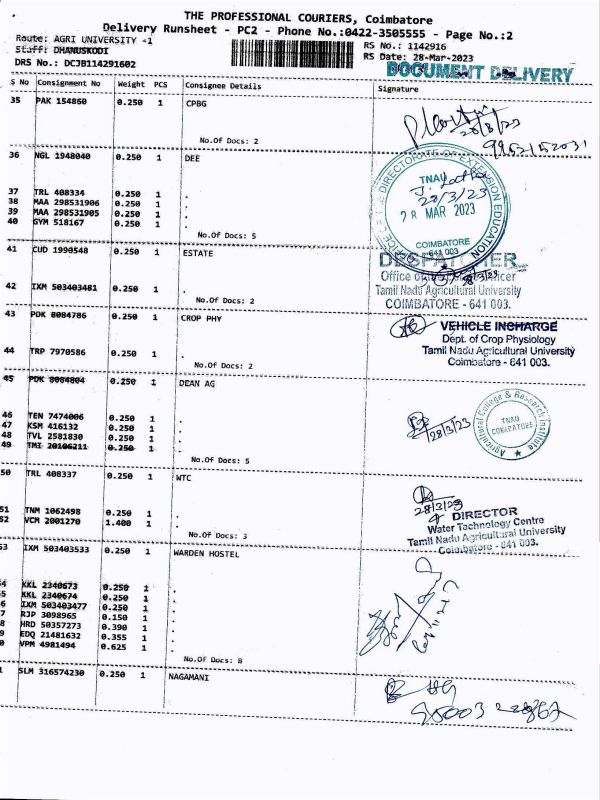 THE PROFESSIONAL COURIERS, Coimbatore
Delivery Runsheet - PC2 - Phone No.:0422-3505555 - Page No.:2
Route: AGRI UNIVERSITY -1
Staff: DHANUSKODI
DRS No.: DCJB114291602
RS No.: 1142916
RS Date: 28-Mar-2023
DOCUMENT DELIVERY
S No Consignment No Weight PCS Consignee Details Signature
35 PAK 154860 0.250 1 CPBG
No.Of Docs: 2
28/3/23
36 NGL 1948040 0.250 1 DEE
37 TRL 408334 0.250 1 .
38 MAA 298531906 0.250 1 .
39 MAA 298531905 0.250 1 .
40 GYM 518167 0.250 1 .
No.Of Docs: 5
DIRECTORATE OF EXTENSION EDUCATION
TNAU
28/3/23
28 MAR 2023
COIMBATORE
641 003
41 CUD 1990548 0.250 1 ESTATE
42 IXM 503403481 0.250 1 .
No.Of Docs: 2
DESPATCHER
Office of Officer
Tamil Nadu Agricultural University
COIMBATORE - 641 003.
43 PDK 8084786 0.250 1 CROP PHY
44 TRP 7970586 0.250 1 .
No.Of Docs: 2
VEHICLE INCHARGE
Dept. of Crop Physiology
Tamil Nadu Agricultural University
Coimbatore - 641 003.
45 PDK 8084804 0.250 1 DEAN AG
46 TEN 7474006 0.250 1 .
47 KSM 416132 0.250 1 .
48 TVL 2581830 0.250 1 .
49 TMI 20106211 0.250 1 .
No.Of Docs: 5
28/3/23
Agricultural College & Research Institute
TNAU
COIMBATORE
50 TRL 408337 0.250 1 WTC
51 TNM 1062498 0.250 1 .
52 VCM 2001270 1.400 1 .
No.Of Docs: 3
28/3/23
DIRECTOR
Water Technology Centre
Tamil Nadu Agricultural University
Coimbatore - 641 003.
53 IXM 503403533 0.250 1 WARDEN HOSTEL
4 KKL 2340673 0.250 1 .
5 KKL 2340674 0.250 1 .
6 IXM 503403477 0.250 1 .
7 RJP 3098965 0.150 1 .
8 HRD 50357273 0.390 1 .
9 EDQ 21481632 0.355 1 .
0 VPM 4981494 0.625 1 .
No.Of Docs: 8
1 SLM 316574230 0.250 1 NAGAMANI